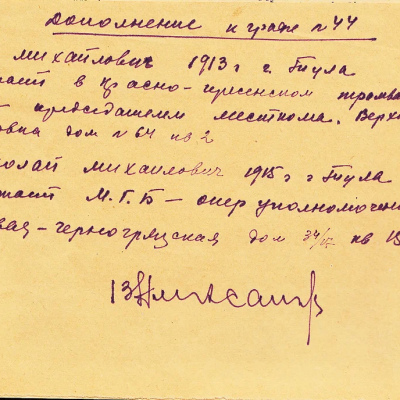 Дополнение к графе №44
Михайлович 1913 г г. Тула
в Красно-пресненском
председателем месткома. Верх
дом №64 кв 2
олай михайлович 1915 г г Тула
М.Г.Б - опер уполномочен
Черногрязская дом 34/ кв 13